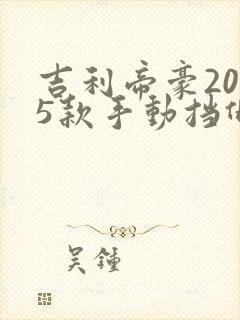 吉利帝豪20
5款手動挡
吴鍾